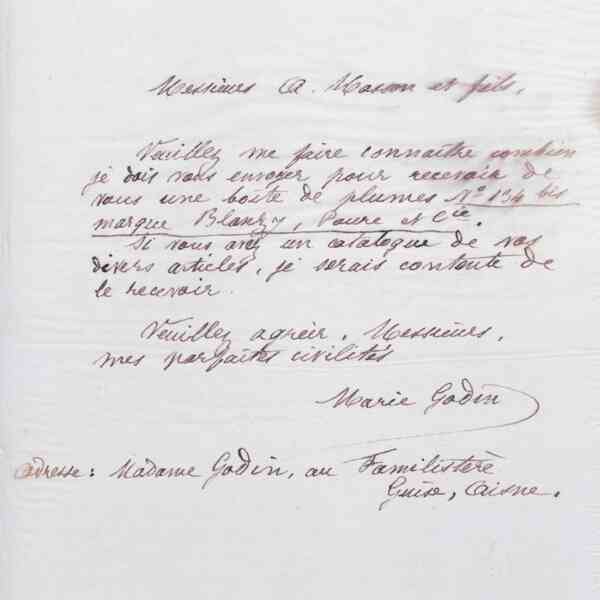 Messieurs A. Masson et fils,
Veuillez me faire connaître combien
je dois vous envoyer pour recevoir de
vous une boîte de plumes N° 134 bis
marque Blanzy, Poure et Cie.
Si vous avez un catalogue de vos
divers articles, je serais contente de
le recevoir.
Veuillez agréer, Messieurs,
mes parfaites civilités
Marie Godin
adresse : Madame Godin, au Familistère
Guise, Aisne.